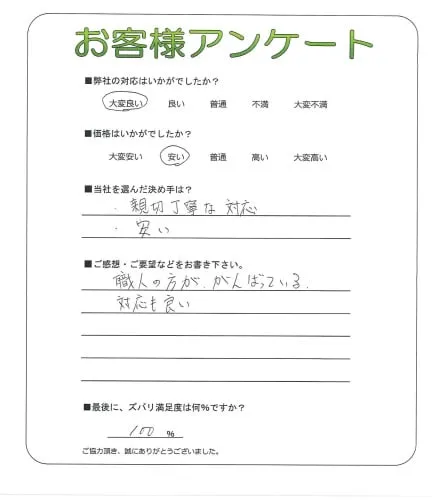 お客様アンケート
■弊社の対応はいかがでしたか?
大変良い 良い 普通 不満 大変不満
■価格はいかがでしたか?
大変安い 安い 普通 高い 大変高い
■当社を選んだ決め手は?
・親切丁寧な対応
・安い
■ご感想・ご要望などをお書き下さい。
職人の方が、がんばっている、
対応も良い
■最後に、ズバリ満足度は何%ですか?
100 %
ご協力頂き、誠にありがとうございました。